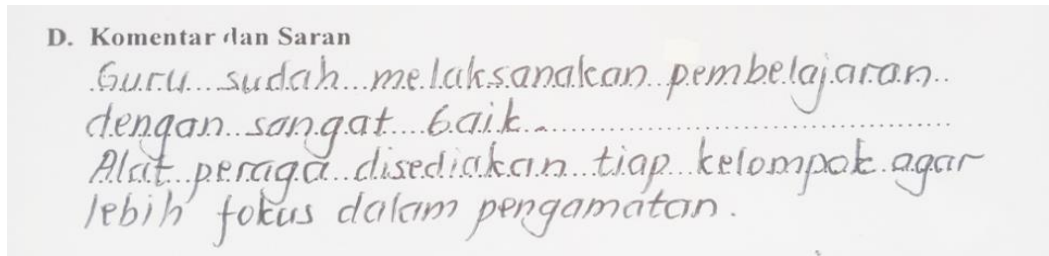 D. Komentar dan Saran
Guru sudah melaksanakan pembelajaran
dengan sangat baik.
Alat peraga disediakan tiap kelompok agar
lebih fokus dalam pengamatan.